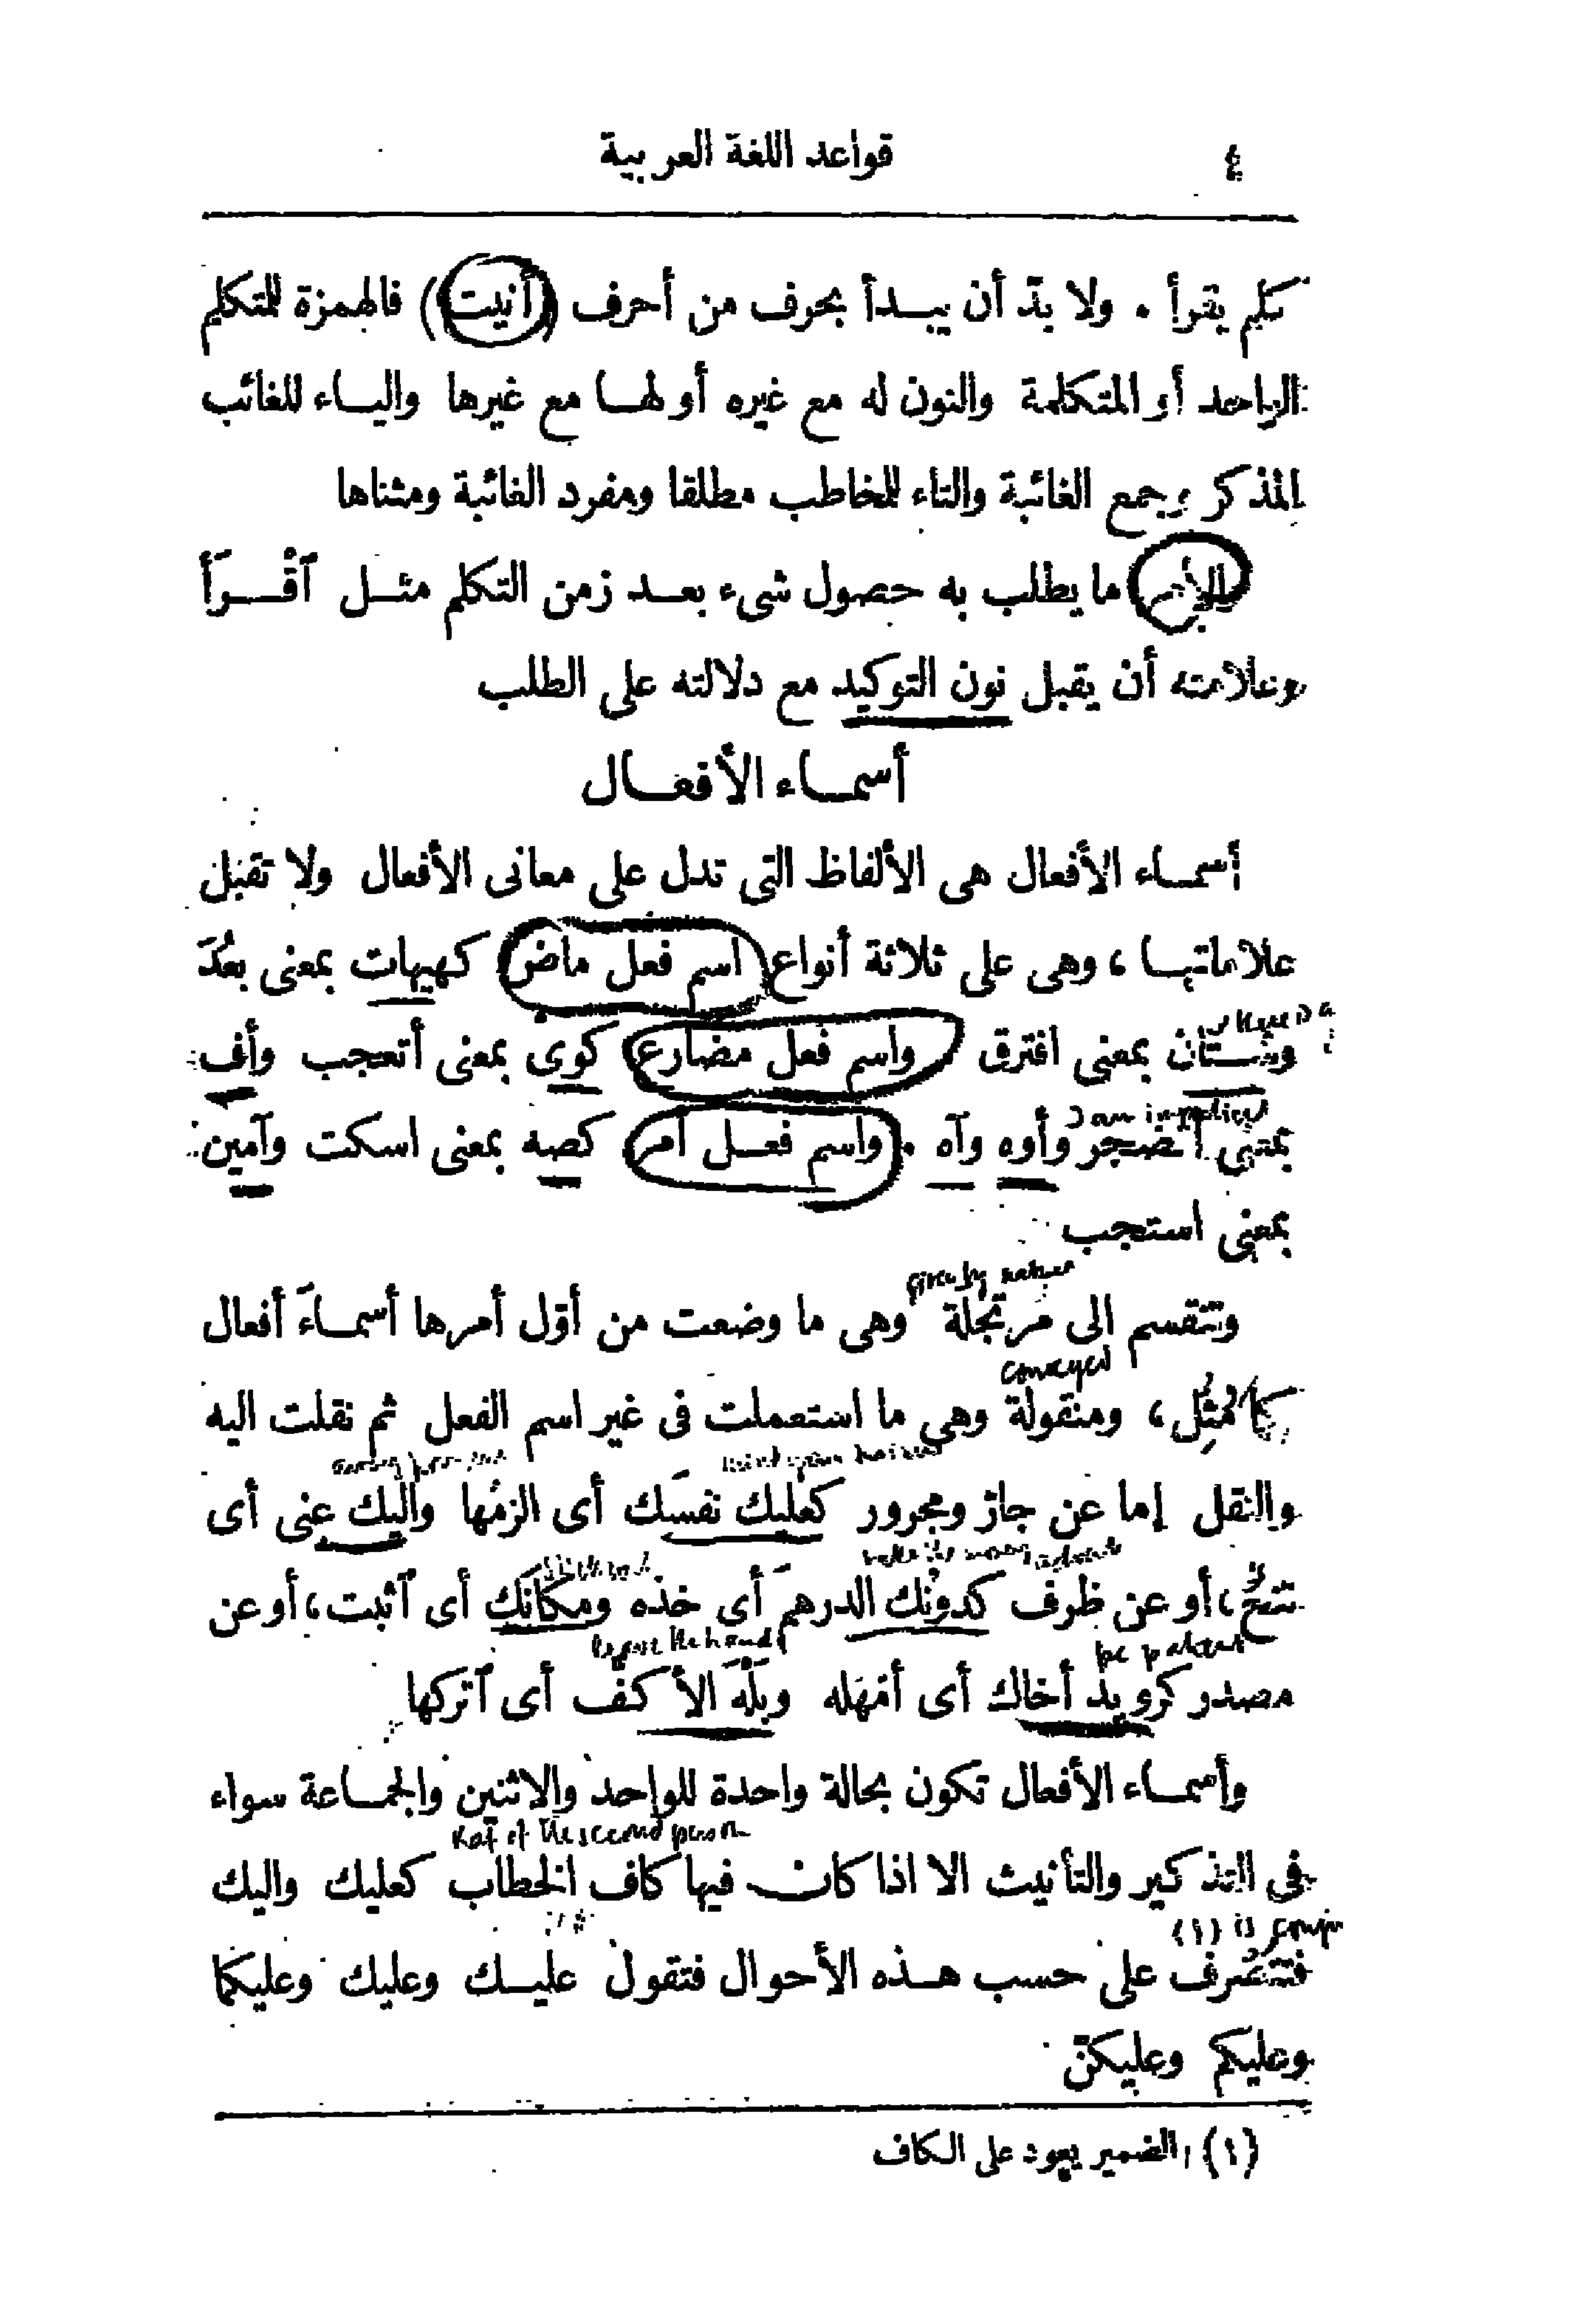 ٤ قواعد اللغة العربية
تكلم يقرأ . ولا بدّ أن يبـدأ بحرف من أحرف (أنيت) فالهمزة للمتكلم
الواحد أو المتكلمة والنون له مع غيره أو لهـا مع غيرها واليـاء للغائب
المذكر وجمع الغائبة والتاء للمخاطب مطلقا ومفرد الغائبة ومثناها
والأمر ما يطلب به حصول شىء بعـد زمن التكلم مثـل ٱقْـرَأ
وعلامته أن يقبل نون التوكيد مع دلالته على الطلب
أسمـاء الأفعـال
أسمـاء الأفعال هى الألفاظ التى تدل على معانى الأفعال ولا تقبل
علاماتهـا ، وهى على ثلاثة أنواع اسم فعل ماض كهيهات بمعنى بعُدَ
وشـتان بمعنى افترق واسم فعل مضارع كوى بمعنى أتعجب وأف
I am impatient
بمعنى أتضجر وأوه وآه . واسم فعـل أمر كصه بمعنى اسكت وآمين
بمعنى استجب
وتنقسم الى مرتجَلة وهى ما وضعت من أوّل أمرها أسمـاءَ أفعال
conveyed
كما مُثِّل ، ومنقولة وهى ما استعملت فى غير اسم الفعل ثم نقلت اليه
والنقل إما عن جارّ ومجرور كعليك نفسَك أى الزمْها واليك عنى أى
تنحَّ ، أو عن ظرف كدونَك الدرهمَ أى خذه ومكانَك أى ٱثبت ، أو عن
be patient
مصدر كرويدَ أخاك أى أمْهله وبَلْهَ الأكفِّ أى ٱتركها
وأسمـاء الأفعال تكون بحالة واحدة للواحد والاثنين والجمـاعة سواء
Kaf of the second person
فى التذكير والتأنيث الا اذا كان فيها كاف الخطاب كعليك واليك
(١) is
فتتصرف على حسب هـذه الأحوال فتقول عليـك وعليك وعليكما
وعليكم وعليكنّ
(١) الضمير يعود على الكاف